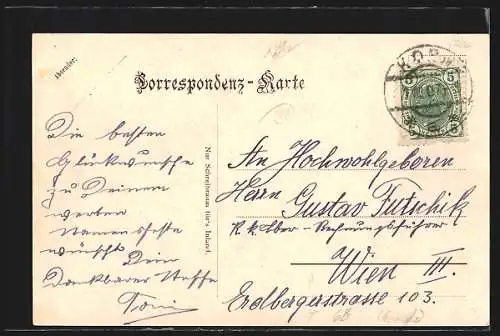 Absender:
Correspondenz-Karte
5 5
5 5
Die besten
Glückwünsche
zu Deinem
werten
Namensfeste
wünscht Dein
dankbarer Neffe
Toni
Nur Schreibraum für's Inland.
An Hochwohlgeboren
Herrn Gustav Futschik
k. k. Ober-Rechnungsführer
Wien III.
Erdbergerstrasse 103.